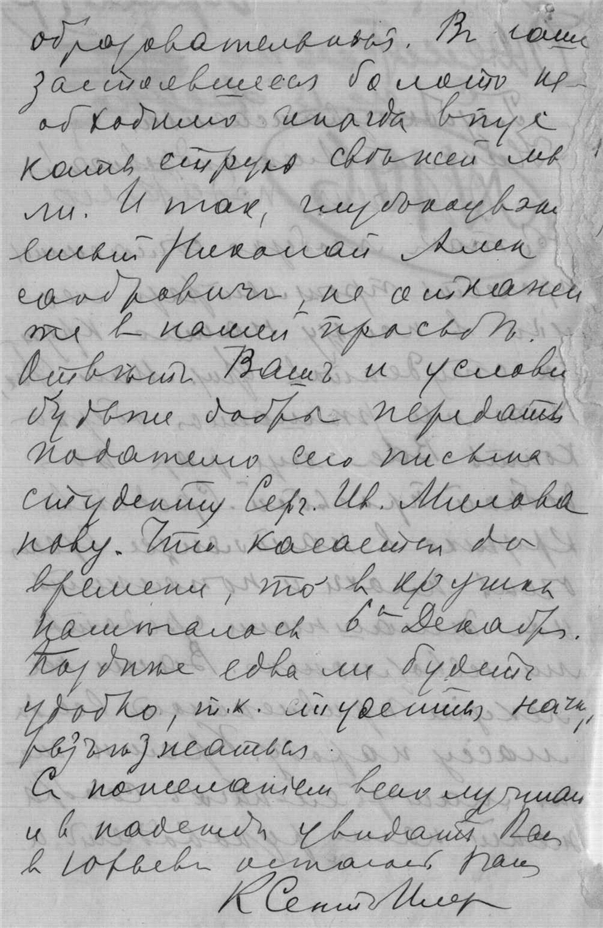 образовательныя. Въ наше
застоявшееся болото не-
обходимо иногда впус
кать струю свѣжей мы
ли. И такъ, глубокоуваж
емый Николай Алек
сандровичъ, не откажи
те въ нашей просьбѣ.
Отвѣтъ Вашъ и услови
будьте добры передать
подателю сего письма
студенту Серг. Ив. Милова
нову. Что касается до
времени, то въ кружкѣ
намѣчалось 6го Декабр.
Позднѣе едва ли будетъ
удобно, т.к. студенты начн,
разъѣзжаться.
Съ пожеланіемъ всего лучшаго
и въ надеждѣ увидать Вас
въ Юрьевѣ остаюсь Ваш
К Сентъ Илер